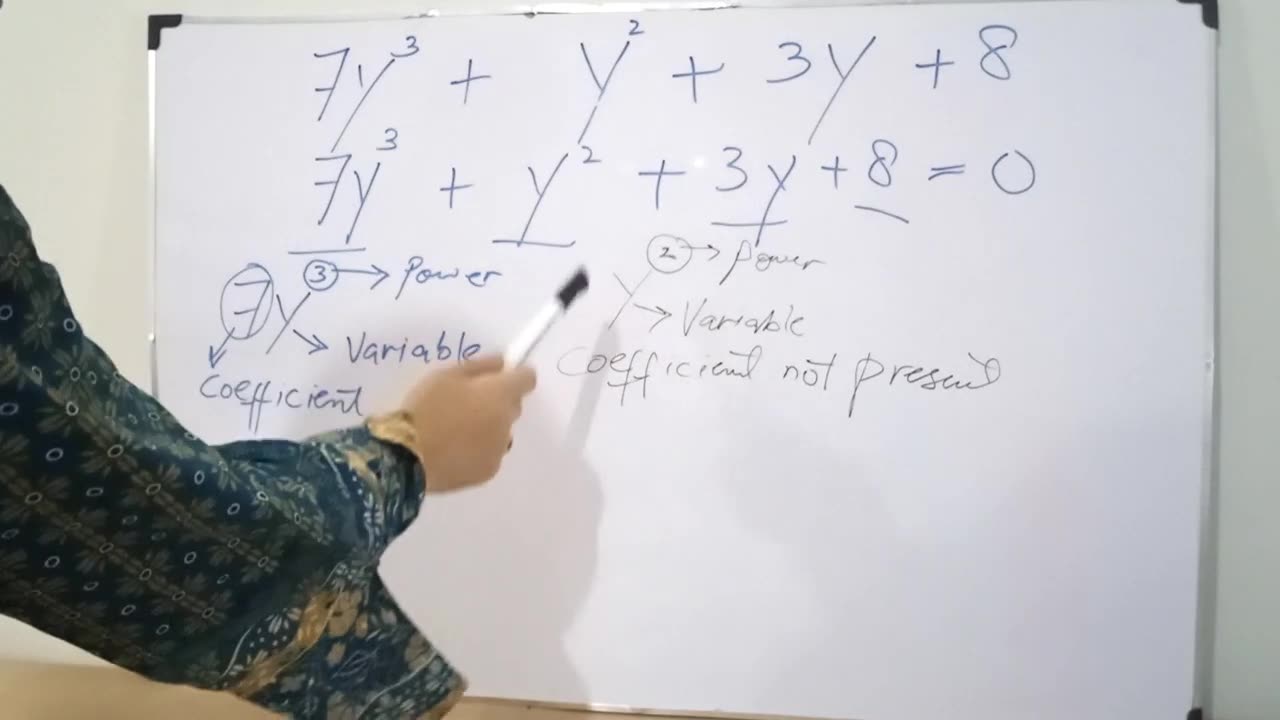 7y³ + y² + 3y + 8
7y³ + y² + 3y + 8 = 0
7y³ → Power
→ Variable
Coefficient
y² → Power
→ Variable
Coefficient not present